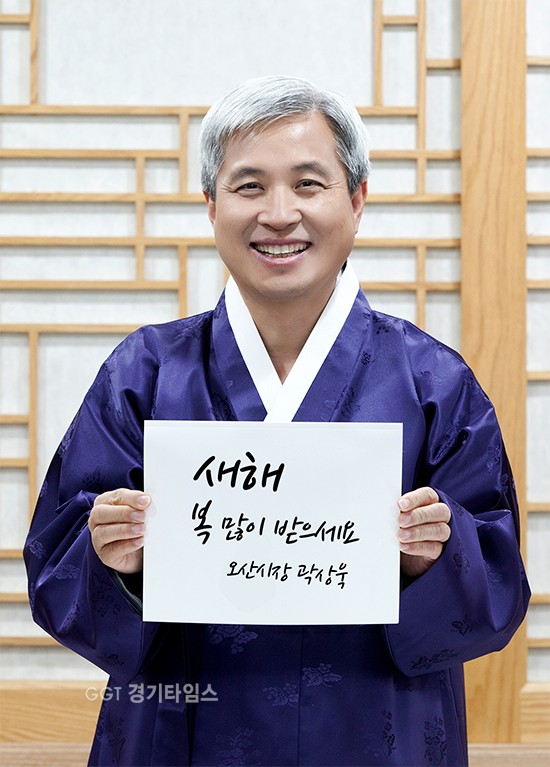 새해
복 많이 받으세요
오산시장 곽상욱
GGT 경기타임스